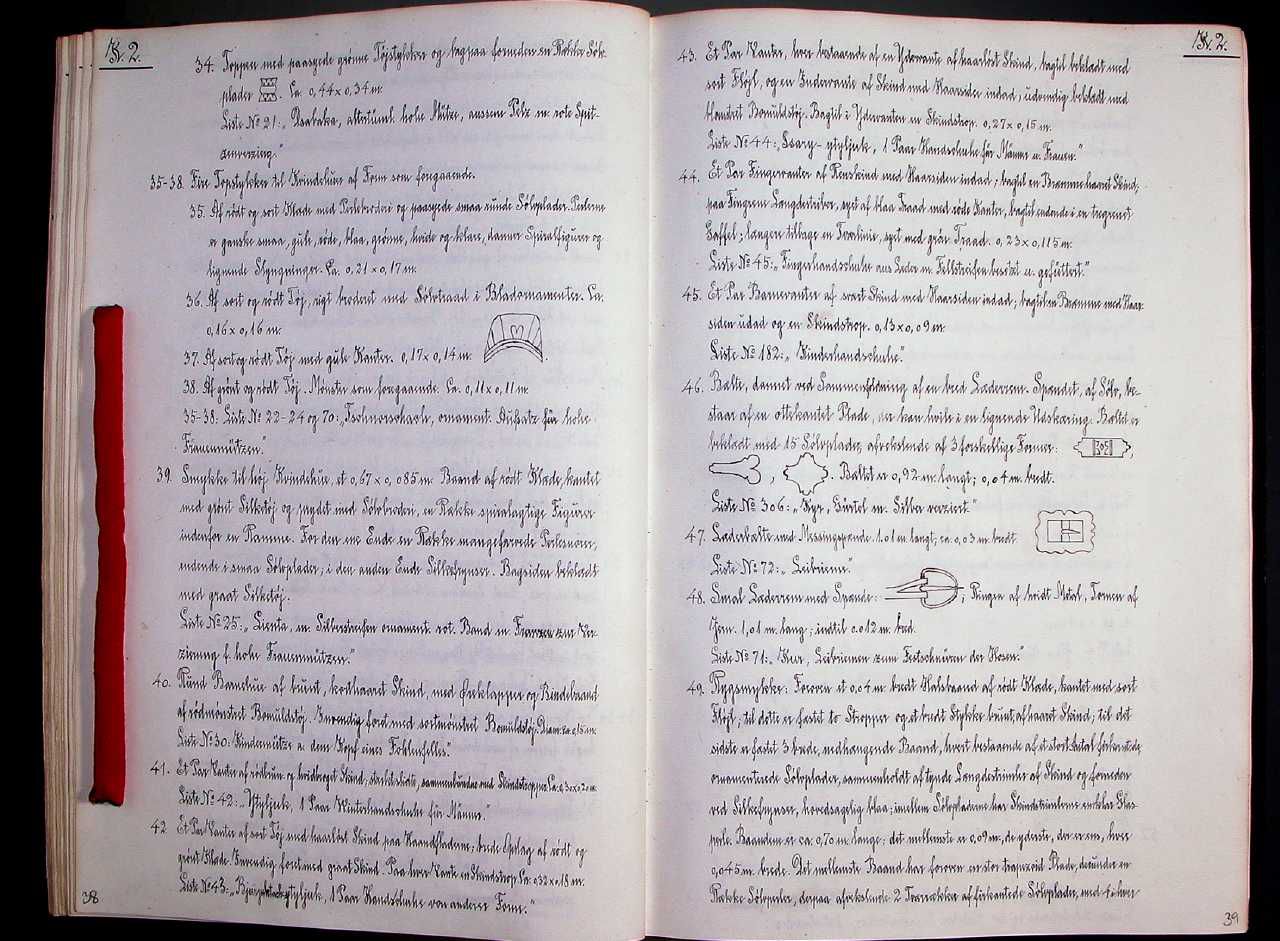 K. 2.
34. Toppen med paasyede grønne Tøjstykker og bagpaa forneden en Række Sølv-
plader. Ca. 0,44 x 0,34 m.
Liste № 21: „Dsabaka, altertüml. hohe Mütze, aussen Pelz m. rote Spit-
zenverzierg."
35-38. Fire Topstykker til Kvindehuer af Form som foregaaende.
35. Af rødt og sort Klæde med Perlebroderi og paasyede smaa runde Sølvplader. Perlerne
er ganske smaa, gule, røde, blaa, grønne, hvide og klare, danner Spiralfigurer og
lignende Slyngninger. Ca. 0,21 x 0,17 m.
36. Af sort og rødt Tøj, rigt broderet med Sølvtraad i Bladornamenter. Ca.
0,16 x 0,16 m.
37. Af sort og rødt Tøj med gule Kanter. 0,17 x 0,14 m.
38. Af grønt og rødt Tøj. Mønster som foregaaende. Ca. 0,11 x 0,11 m.
35-38: Liste № 22-24 og 70: ornament. Aufsatz für hohe
Frauenmützen."
39. Smykke til høj Kvindehue, et 0,67 x 0,085 m. Baand af rødt Klæde, kantet
med grønt Silketøj og prydet med Sølvbroderi, en Række spiralagtige Figurer
indenfor en Ramme. Fra den ene Ende en Række mangefarvede Perlesnore,
endende i smaa Sølvplader; i den anden Ende Silkefrynser. Bagsiden beklædt
med graat Silketøj.
Liste № 25: „Lienta, m. Silberstreifen ornament. rot. Band m. Franzen zur Ver-
zierung f. hohe Frauenmützen."
40. Rund Barnehue af brunt, korthaaret Skind, med Øreklapper og Bindebaand
af rødmønstret Bomuldstøj. Indvendig foret med sortmønstret Bomuldstøj. Diam. ca. 0,15 m.
Liste № 30: Kindermütze a. dem Kopf eines Fohlenfelles."
41. Et Par Vanter af rødbrun og hvidbroget Skind, sammenbundne med Skindstropper. Ca. 0,30 x 0,20 m.
Liste № 42: „Ytyljuk, 1 Paar Winterhandschuhe für Männer."
42. Et Par Vanter af sort Tøj med haarløst Skind paa Haandfladerne; brede Opslag af rødt og
grønt Klæde. Indvendig foret med graat Skind. Paa hver Vante en Skindstrop. Ca. 0,32 x 0,18 m.
Liste № 43: 1 Paar Handschuhe von anderer Form."
38
K. 2.
43. Et Par Vanter, hver bestaaende af en Ydervante af haarløst Skind, bagtil beklædt med
sort Fløjl, og en Indervante af Skind med Haarsiden indad; udvendig beklædt med
blomstret Bomuldstøj. Bagtil i Ydervanten en Skindstrop. 0,27 x 0,15 m.
Liste № 44: „Ssary-ytyljuk, 1 Paar Handschuhe für Männer u. Frauen."
44. Et Par Fingervanter af Renskind med Haarsiden indad; bagtil en Bræmme haaret Skind;
paa Fingrene Længdestriber, syet af blaa Traad med røde Kanter, bagtil endende i en tregrenet
Gaffel; længere tilbage en Tværlinie, syet med grøn Traad. 0,23 x 0,115 m.
Liste № 45: „Fingerhandschuhe aus Leder m. Fellstreifen besetzt u. gefüttert."
45. Et Par Barnevanter af svært Skind med Haarsiden indad; bagtil en Bræmme med Haar-
siden udad og en Skindstrop. 0,13 x 0,09 m.
Liste № 182: „Kinderhandschuhe."
46. Bælte, dannet ved Sammenfoldning af en bred Læderrem. Spændet, af Sølv, be-
staar af en ottekantet Plade, der kan hvile i en lignende Udskæring. Bæltet er
beklædt med 15 Sølvplader, afvekslende af 3 forskellige Former: 305,
, . Bæltet er 0,92 m. langt; 0,04 m. bredt.
Liste № 306: „Kyr, Gürtel m. Silber verziert."
47. Læderbælte med Messingspænde. 1.01 m. langt; ca. 0,03 m. bredt.
Liste № 72: „Leibriemen."
48. Smal Læderrem med Spænde: ; Ringen af hvidt Metal, Tornen af
Jern. 1,01 m. lang; indtil 0.012 m. bred.
Liste № 71: „Kur, Leibriemen zum Festschnüren der Hosen."
49. Rygsmykke: Foroven et 0,04 m. bredt Halsbaand af rødt Klæde, kantet med sort
Fløjl; til dette er fæstet to Stropper og et bredt Stykke brunt, afhaaret Skind; til det
sidste er fæstet 3 brede, nedhængende Baand, hvert bestaaende af et stort Antal firkantede,
ornamenterede Sølvplader, sammenholdt af tynde Længdestrimler af Skind og forneden
ved Silkefrynser, hovedsagelig blaa; imellem Sølvpladerne har Skindstrimlerne enkelte Glas-
perle. Baandene er ca. 0,70 m. lange; det mellemste er 0,09 m., de yderste, der er ens, hver
0,045 m. brede. Det mellemste Baand har foroven en stor trapezoid Plade, derunder en
Række Sølvperler, derpaa afvekslende 2 Tværrækker af firkantede Sølvplader, med 4 i hver
39